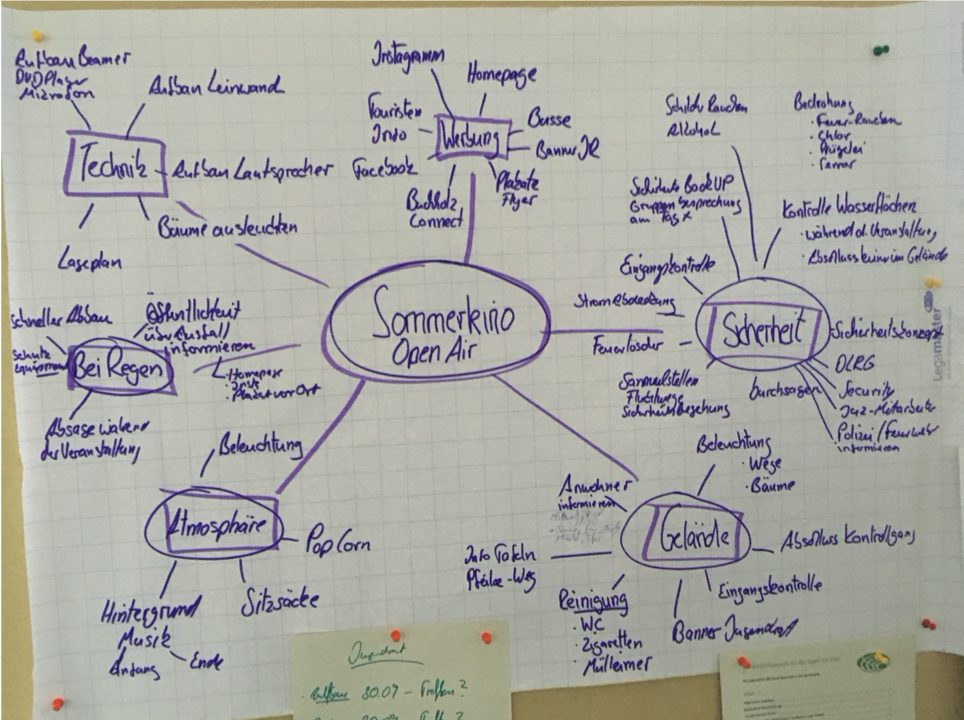 Aufbau Beamer
DVD Player
Mikrofon
Aufbau Leinwand
Technik
Aufbau Lautsprecher
Bäume ausleuchten
Laseplan
Instagramm
Homepage
Touristen
Info
Werbung
Busse
Banner JR
Facebook
Buchholz
Connect
Plakate
Flyer
Schilder Rauchen
Alkohol
Bedrohung
· Feuer-Rauchen
· Chlor
· Prügelei
· Terror
BackUP
am Tag x
Kontrolle Wasserflächen
· während d. Veranstaltung
· Abschluss keiner im Gelände
Eingangskontrolle
Feuerlöscher
Sicherheit
Sicherheitskonzept
DLRG
Security
Juz-Mitarbeiter
Polizei/Feuerwehr
informieren
Durchsagen
Sammelstellen
Fluchtwege
Sommerkino
Open Air
Schneller Abbau
Schutz
Equipment
Bei Regen
Öffentlichkeit
über Ausfall
informieren
· Homepage
· Plakat vor Ort
Absage während
der Veranstaltung
Beleuchtung
Atmosphäre
PopCorn
Sitzsäcke
Hintergrund
Musik
Anfang
Ende
Beleuchtung
· Wege
· Bäume
Anwohner
informieren
Gelände
Abschluss Kontrollgang
Info Tafeln
Pfeile-Weg
Eingangskontrolle
Reinigung
· WC
· Zigaretten
· Mülleimer
Banner Jugendrat
Legamaster
Jugendrat
· Aufbau 30.09 - Treffen?